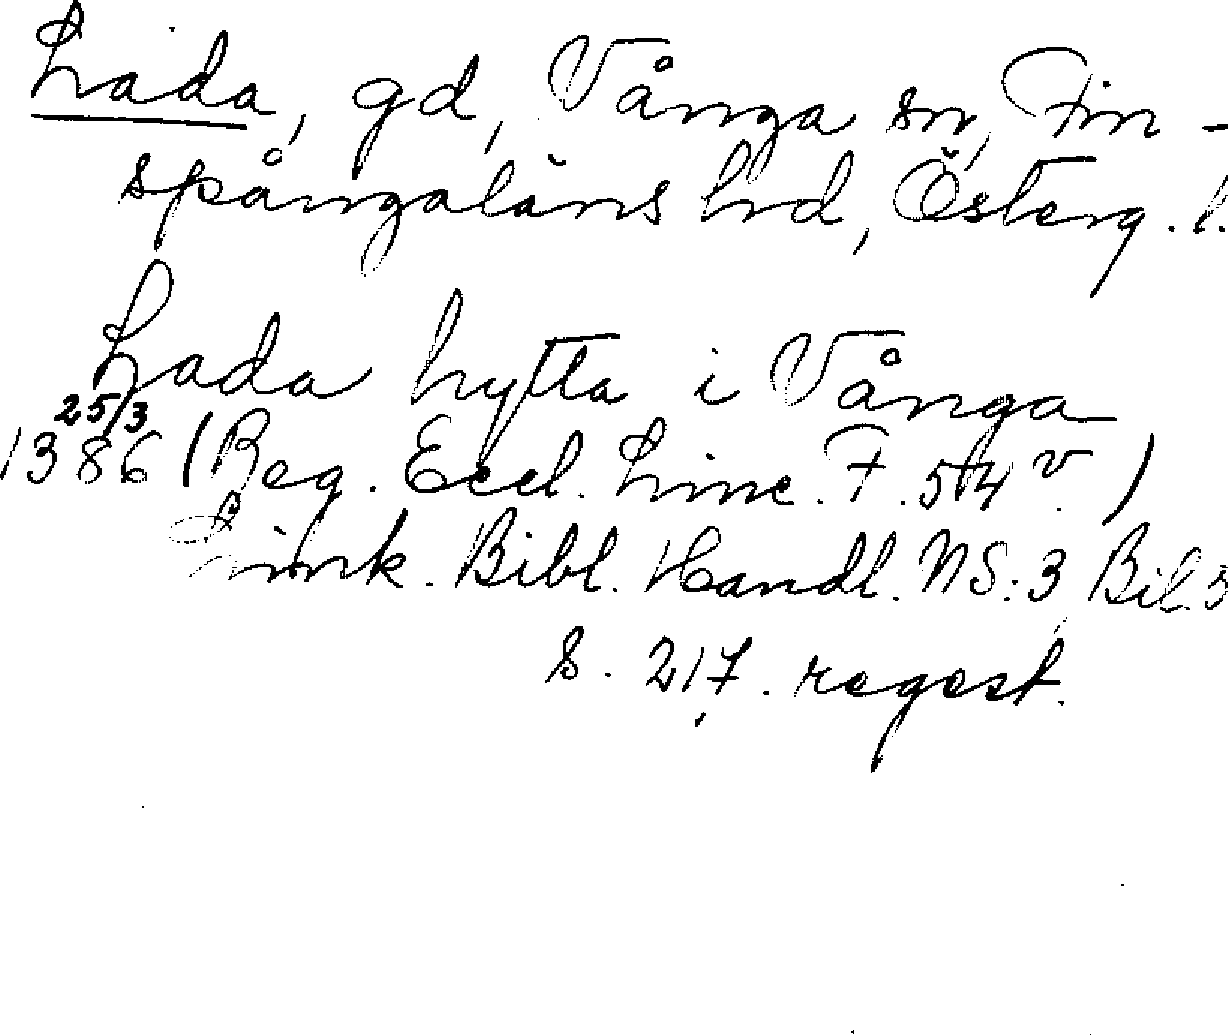 Lada, gd, Vånga sn, Fin-
spångaläns hd, Österg. l.
Lada hytta i Vånga
25/3
1386 (Reg. Eccl. Linc. F. 54 v.)
Linnk. Bibl. Handl. NS:3 Bil. 3
s. 217. regest.